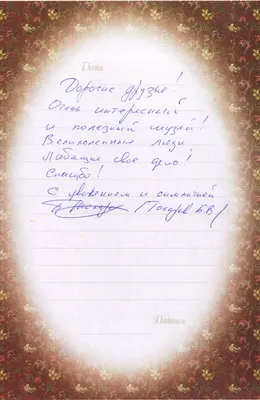 Дата
Дорогие друзья!
Очень интересный
и полезный музей!
Великолепные люди
Любящие свое дело!
Спасибо!
С уважением и симпатией
Подпись